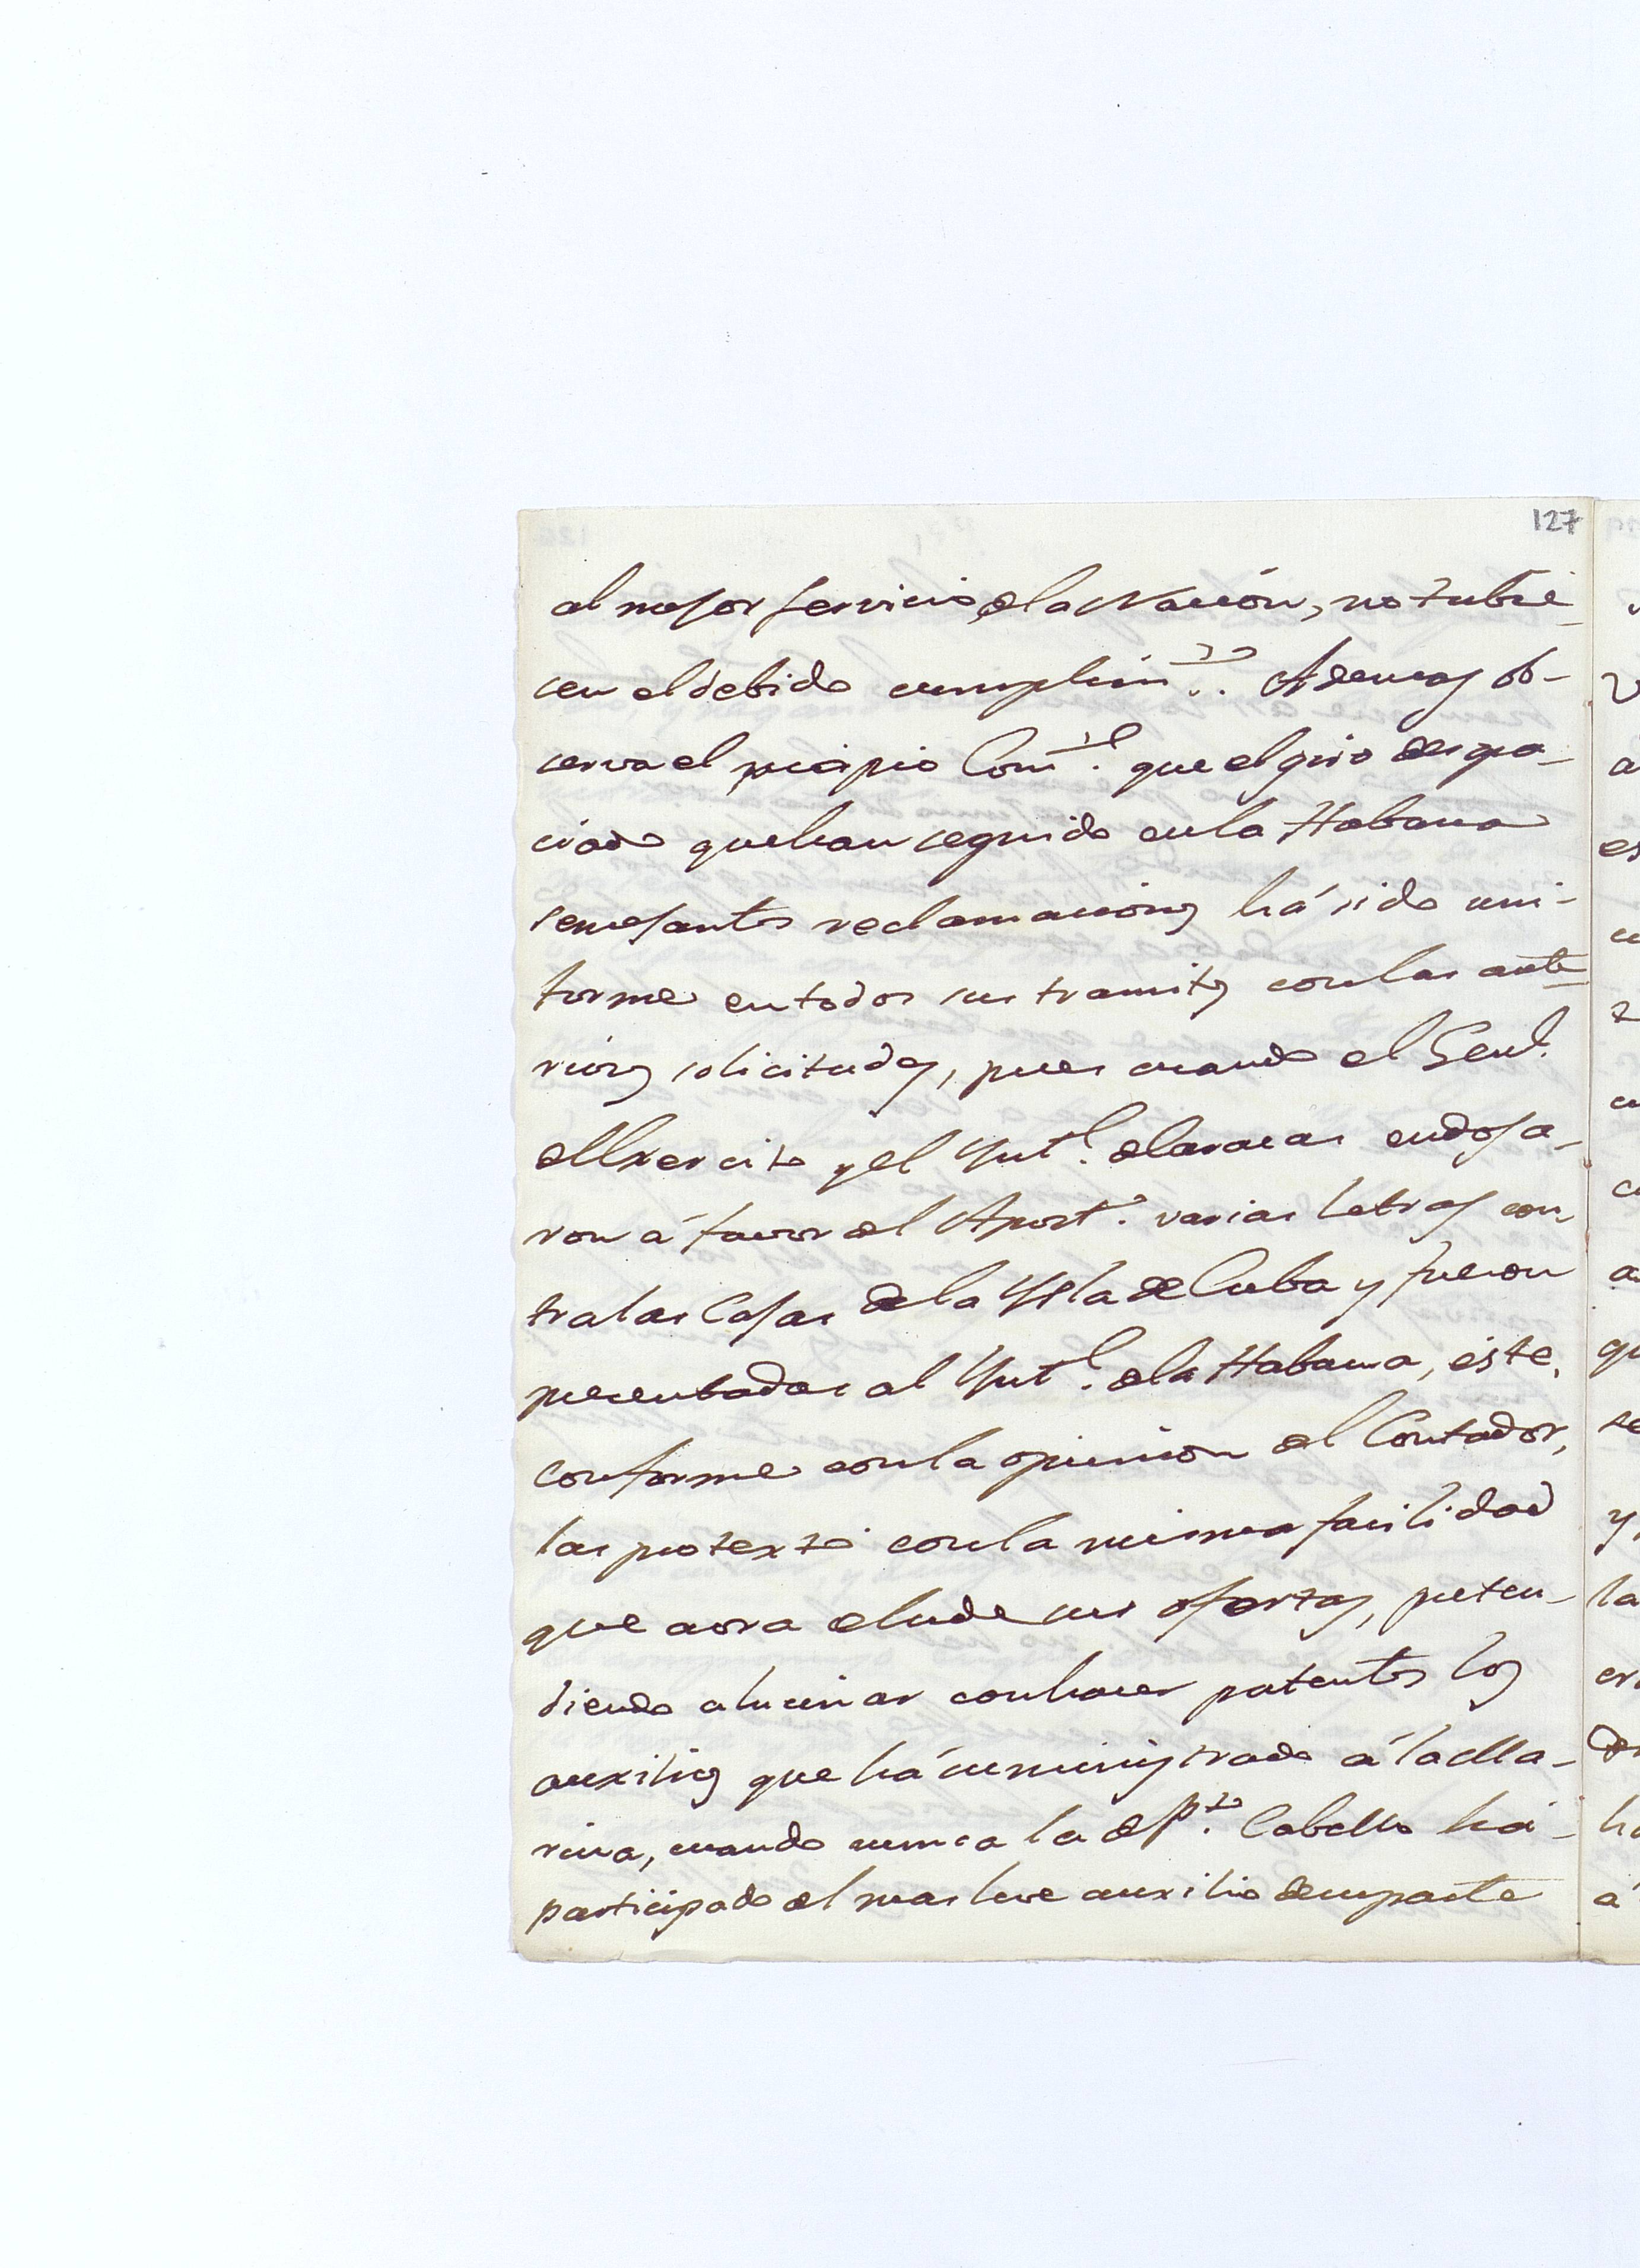 127
al mejor servicio de la Nación, no tubie-
cen el debido cumplim.to. Ademas ob-
cerva el propio Com.l que el giro desgra-
ciado que han seguido en la Habana
semejantes reclamaciones há sido uni-
forme en todos sus tramites con las ante
riores solicitudes, pues cuando el Genl.
del Exercito y el Yntl. de Caracas endosa-
ron á favor del Apost.o varias letras con
tra las Casas de la Ysla de Cuba y fueron
precentadas al Yntl. de la Habana, éste,
conforme con la opinion del Contador,
las protextó con la misma facilidad
que aora elude sus ofertas, preten-
diendo alucinar con hacer patentes los
auxilios que há suministrado á la Ma-
rina, cuando nunca la de P.to Cabello há
participado el mas leve auxilio de su parte